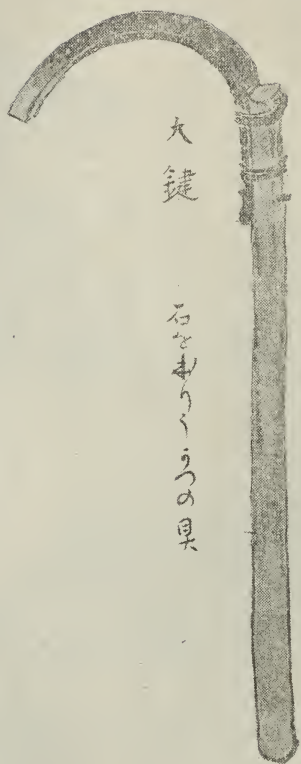 大鍵
石を わりくうつの具